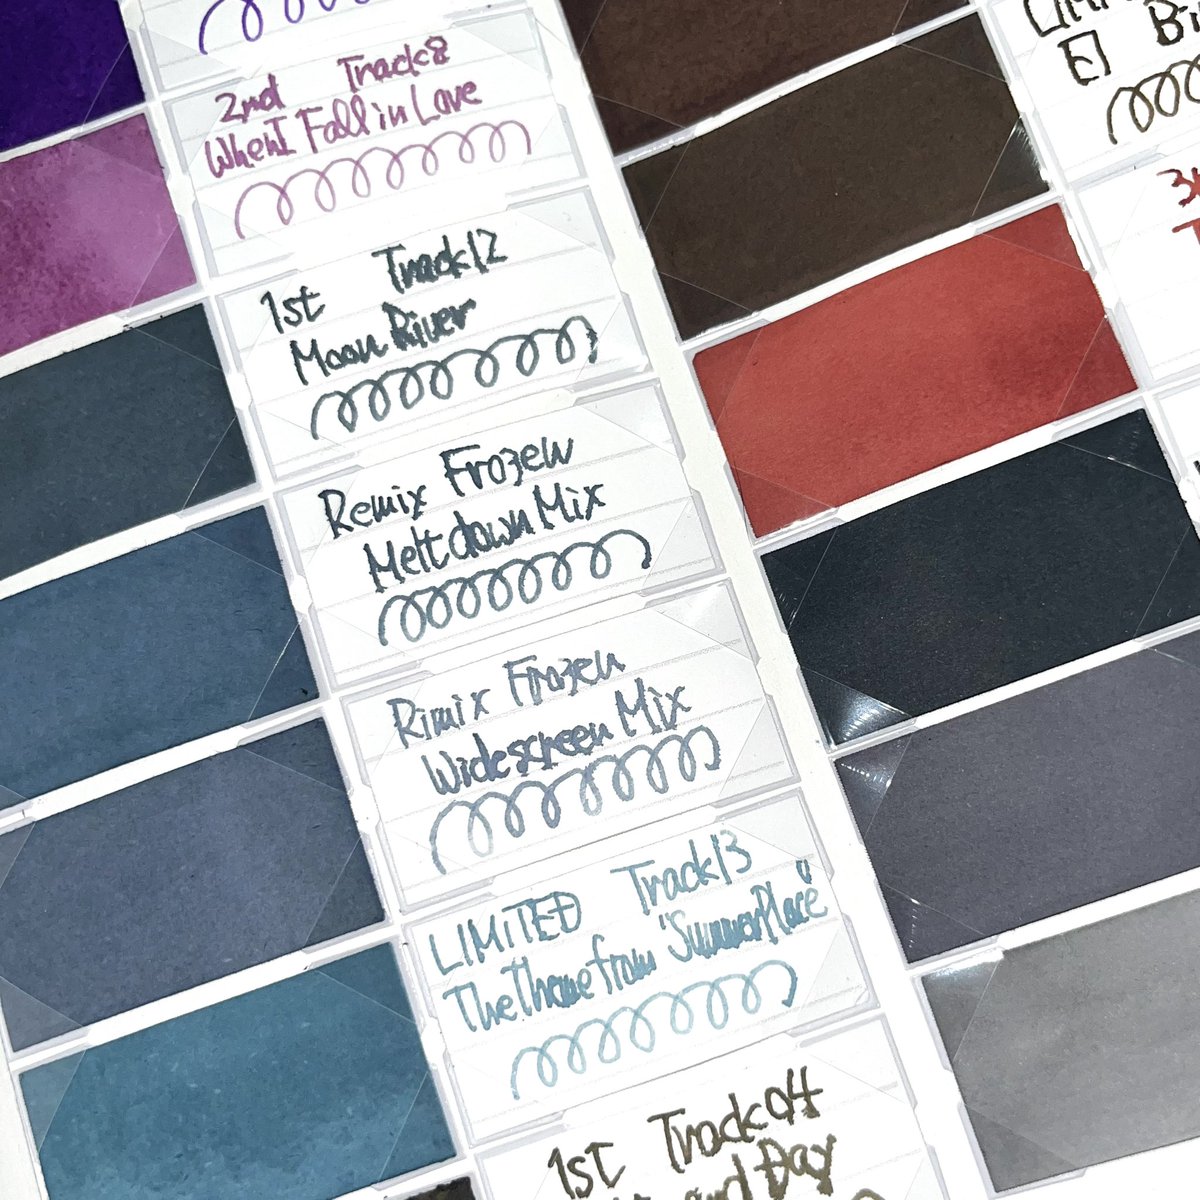 2nd Track8
When I Fall in Love
1st Track12
Moon River
Remix Frozen
Meltdown Mix
Rimix Frozen
Widescreen Mix
LIMITED Track13
The Theme from "Summer Place"
1st Track04
Day
El Bi